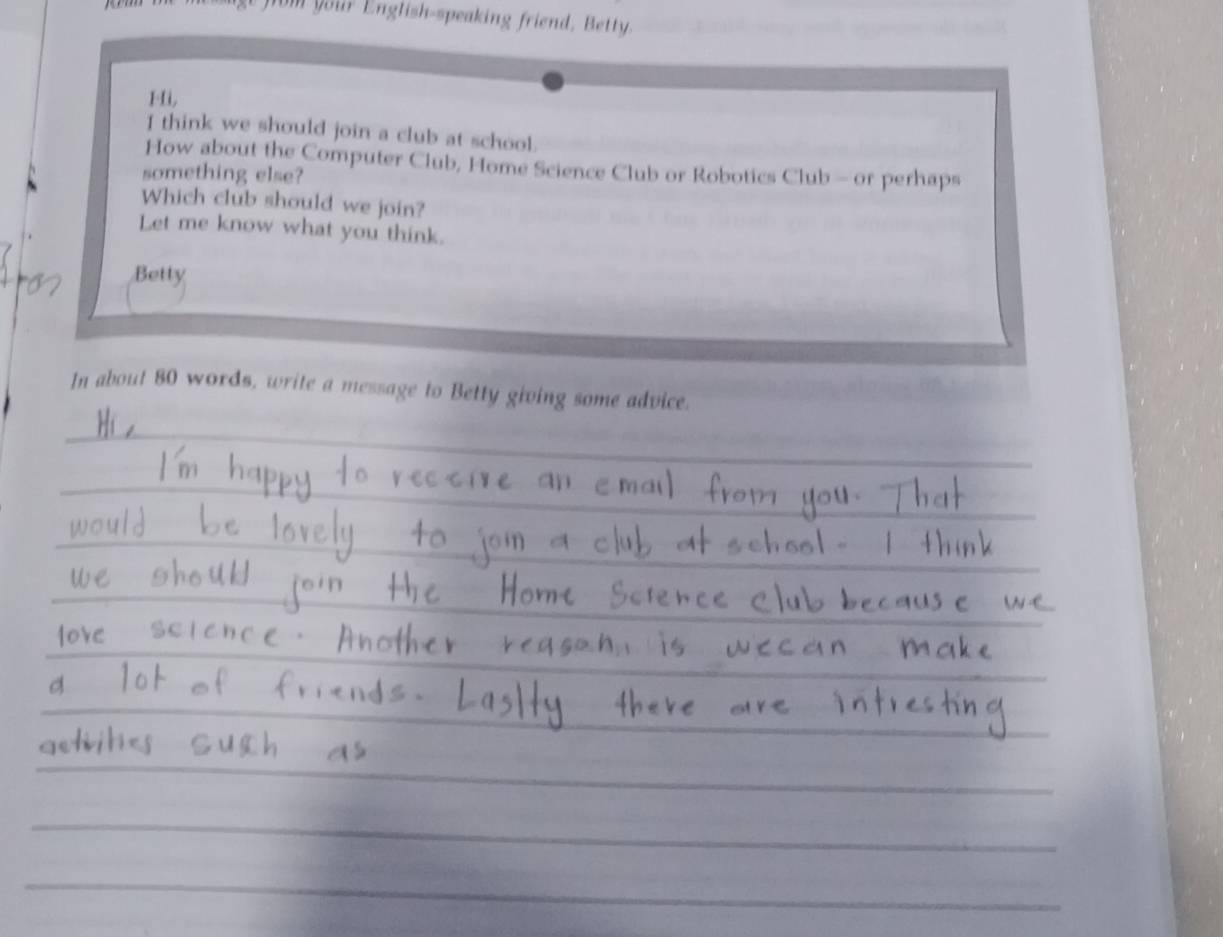 from your English-speaking friend, Betty.
Hi,
I think we should join a club at school.
How about the Computer Club, Home Science Club or Robotics Club - or perhaps
something else?
Which club should we join?
Let me know what you think.
Betty
In about 80 words, write a message to Betty giving some advice.
Hi,
I'm happy to receive an email from you. That
would be lovely to join a club at school. I think
we should join the Home Science club because we
love science. Another reason, is we can make
a lot of friends. Lastly there are intresting
activities such as